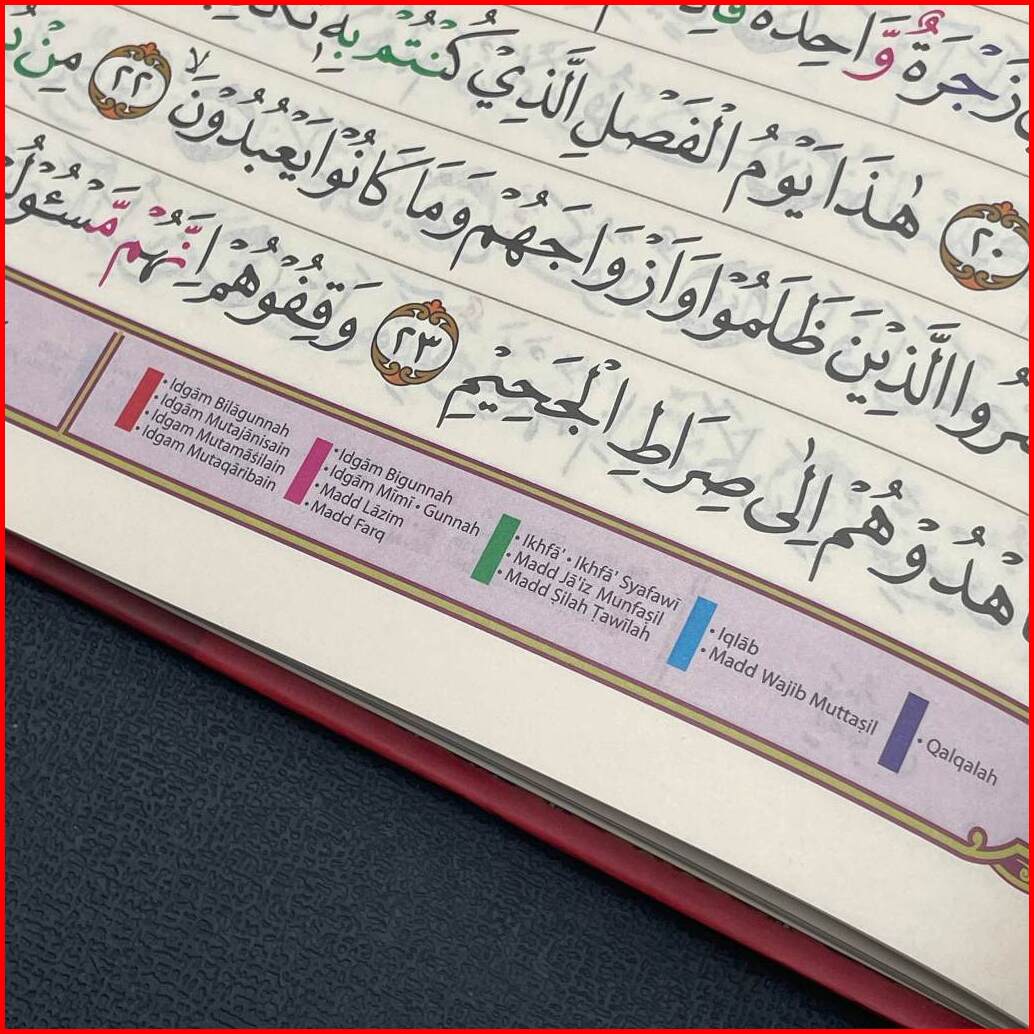 زَجْرَةٌ وَّاحِدَةٌ
٢٠ هٰذَا يَوْمُ الْفَصْلِ الَّذِيْ كُنْتُمْ بِهٖ
الَّذِيْنَ ظَلَمُوْا وَاَزْوَاجَهُمْ وَمَا كَانُوْا يَعْبُدُوْنَ ۙ ٢٢ مِنْ
هْدُوْهُمْ اِلٰى صِرَاطِ الْجَحِيْمِ ٢٣ وَقِفُوْهُمْ اِنَّهُمْ
• Idgām Bilāgunnah
• Idgām Mutajānisain
• Idgam Mutamāṡilain
• Idgam Mutaqāribain
• Idgām Bigunnah
• Idgām Mimī • Gunnah
• Madd Lāzim
• Madd Farq
• Ikhfā' • Ikhfā' Syafawī
• Madd Jā'iz Munfaṣil
• Madd Ṣilah Ṭawīlah
• Iqlāb
• Madd Wajib Muttaṣil
• Qalqalah